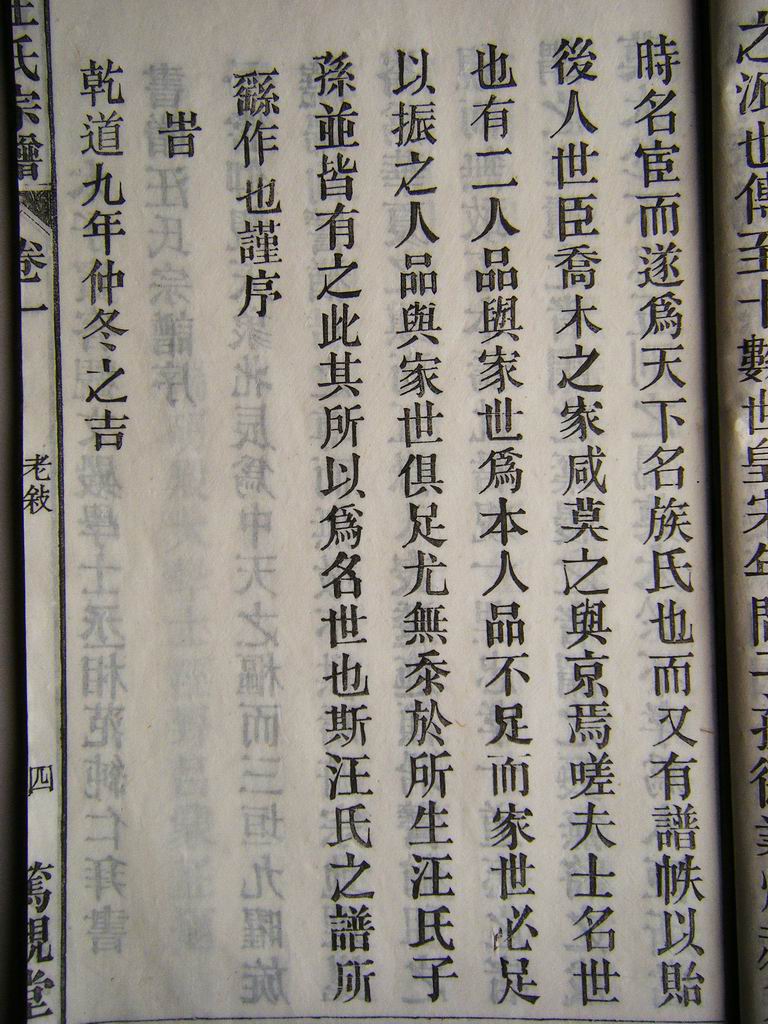 之派也傳至十數世皇宋年間
時名宦而遂爲天下名族氏也而又有譜帙以貽
後人世臣喬木之家咸莫之與京焉嗟夫士名世
也有二人品與家世爲本人品不足而家世必足
以振之人品與家世俱足尤無忝於所生汪氏子
孫並皆有之此其所以爲名世也斯汪氏之譜所
繇作也謹序
旹
乾道九年仲冬之吉
汪氏宗譜 卷一 老敍 四 篤親堂